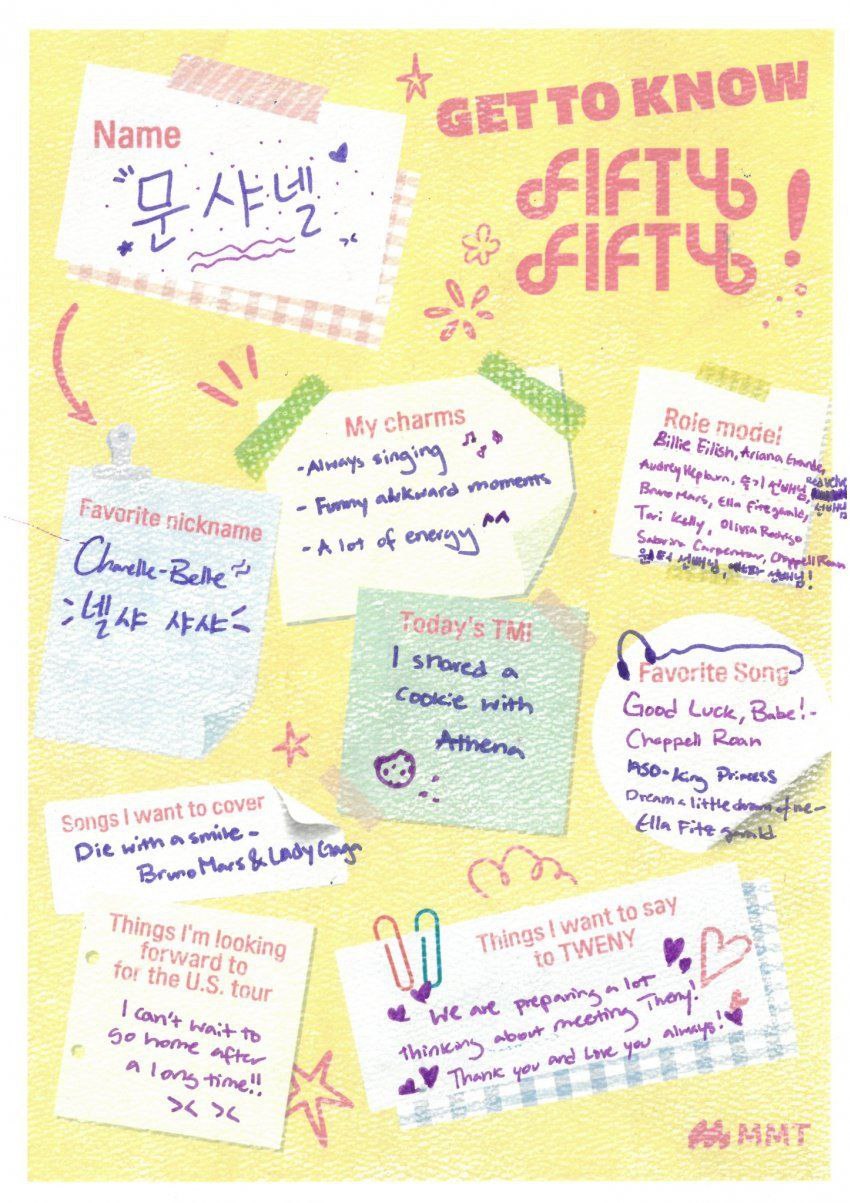 GET TO KNOW
FIFTY
FIFTY!
Name
문샤넬
My charms
- Always singing
- Funny awkward moments
- A lot of energy ^^
Role model
Billie Eilish, Ariana Grande,
Audrey Hepburn, 슬기 선배님,
Bruno Mars, Ella Fitzgerald, 선배님
Tori Kelly, Olivia Rodrigo
Sabrina Carpenter, Chappell Roan
선배님, 선배님!
Favorite nickname
Chanelle-Belle
넬샤 샤샤
Today's TMI
I shared a
cookie with
Athena
Favorite Song
Good Luck, Babe! -
Chappell Roan
1950 - King Princess
Dream a little dream of me -
Ella Fitzgerald
Songs I want to cover
Die with a smile -
Bruno Mars & Lady Gaga
Things I'm looking
forward to
for the U.S. tour
I can't wait to
go home after
a long time!!
>< ><
Things I want to say
to TWENY
We are preparing a lot
thinking about meeting Tweny!
Thank you and Love you always!
MMT